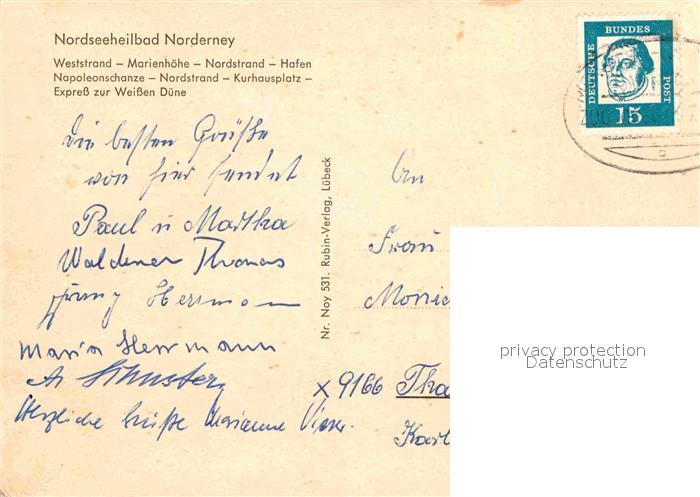 Nordseeheilbad Norderney
Weststrand – Marienhöhe – Nordstrand – Hafen
Napoleonschanze – Nordstrand – Kurhausplatz –
Expreß zur Weißen Düne
DEUTSCHE BUNDES POST
15
Die besten Grüße
von hier sendet
Paul u Martha
Waldener Thomas
Herrmann
Maria Herrmann
Schuster
Herzliche Grüße Marianne
Nr. Noy 531. Rubin-Verlag, Lübeck
An
Frau
Monic
x 9166 Tha
Karl
privacy protection
Datenschutz